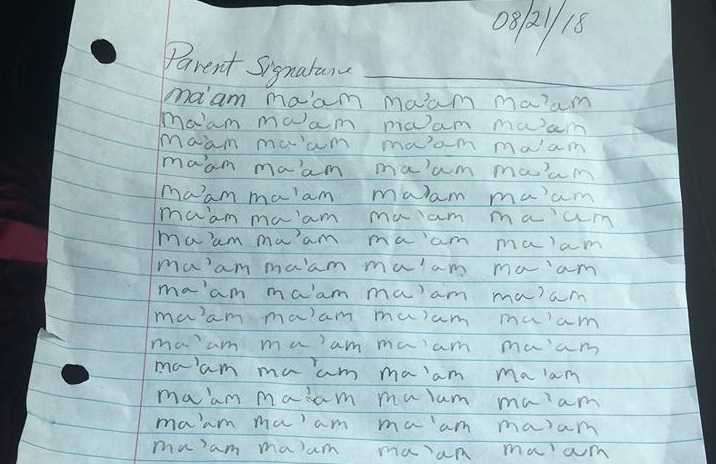 08/21/18
Parent Signature
ma'am ma'am ma'am ma'am
ma'am ma'am ma'am ma'am
ma'am ma'am ma'am ma'am
ma'am ma'am ma'am ma'am
ma'am ma'am ma'am ma'am
ma'am ma'am ma'am ma'am
ma'am ma'am ma'am ma'am
ma'am ma'am ma'am ma'am
ma'am ma'am ma'am ma'am
ma'am ma'am ma'am ma'am
ma'am ma'am ma'am ma'am
ma'am ma'am ma'am ma'am
ma'am ma'am ma'am ma'am
ma'am ma'am ma'am ma'am
ma'am ma'am ma'am ma'am